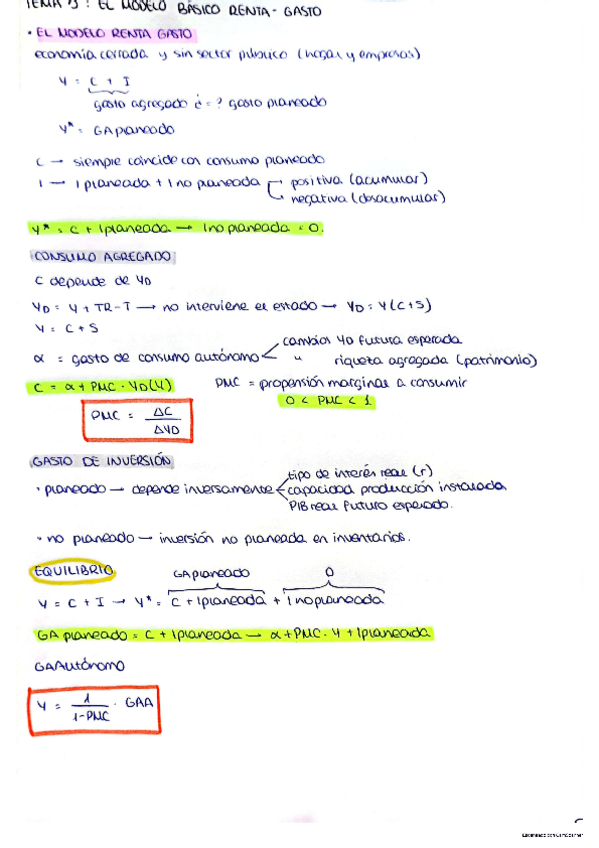 TEMA 13: EL MODELO BÁSICO RENTA - GASTO
· EL MODELO RENTA GASTO
economía cerrada y sin sector público (hogar y empresas)
Y = C + I
gasto agregado ¿=? gasto planeado
Y* = GA planeado
C → siempre coincide con consumo planeado
I → I planeada + I no planeada
positiva (acumular)
negativa (desacumular)
Y* = C + I planeada → I no planeada = 0.
CONSUMO AGREGADO
C depende de YD
YD = Y + TR - T → no interviene el estado → YD = Y (C+S)
Y = C + S
α = gasto de consumo autónomo
cambios YD futura esperada
" riqueza agregada (patrimonio)
C = α + PMC · YD (Y)
PMC = propensión marginal a consumir
0 < PMC < 1
PMC = ΔC / ΔYD
GASTO DE INVERSIÓN
· planeado → depende inversamente
tipo de interés real (r)
capacidad producción instalada
PIB real futuro esperado.
· no planeado → inversión no planeada en inventarios.
EQUILIBRIO
GA planeado 0
Y = C + I → Y* = C + I planeada + I no planeada
GA planeado = C + I planeada → α + PMC · Y + I planeada
GAAutónomo
Y = 1 / 1-PMC · GAA